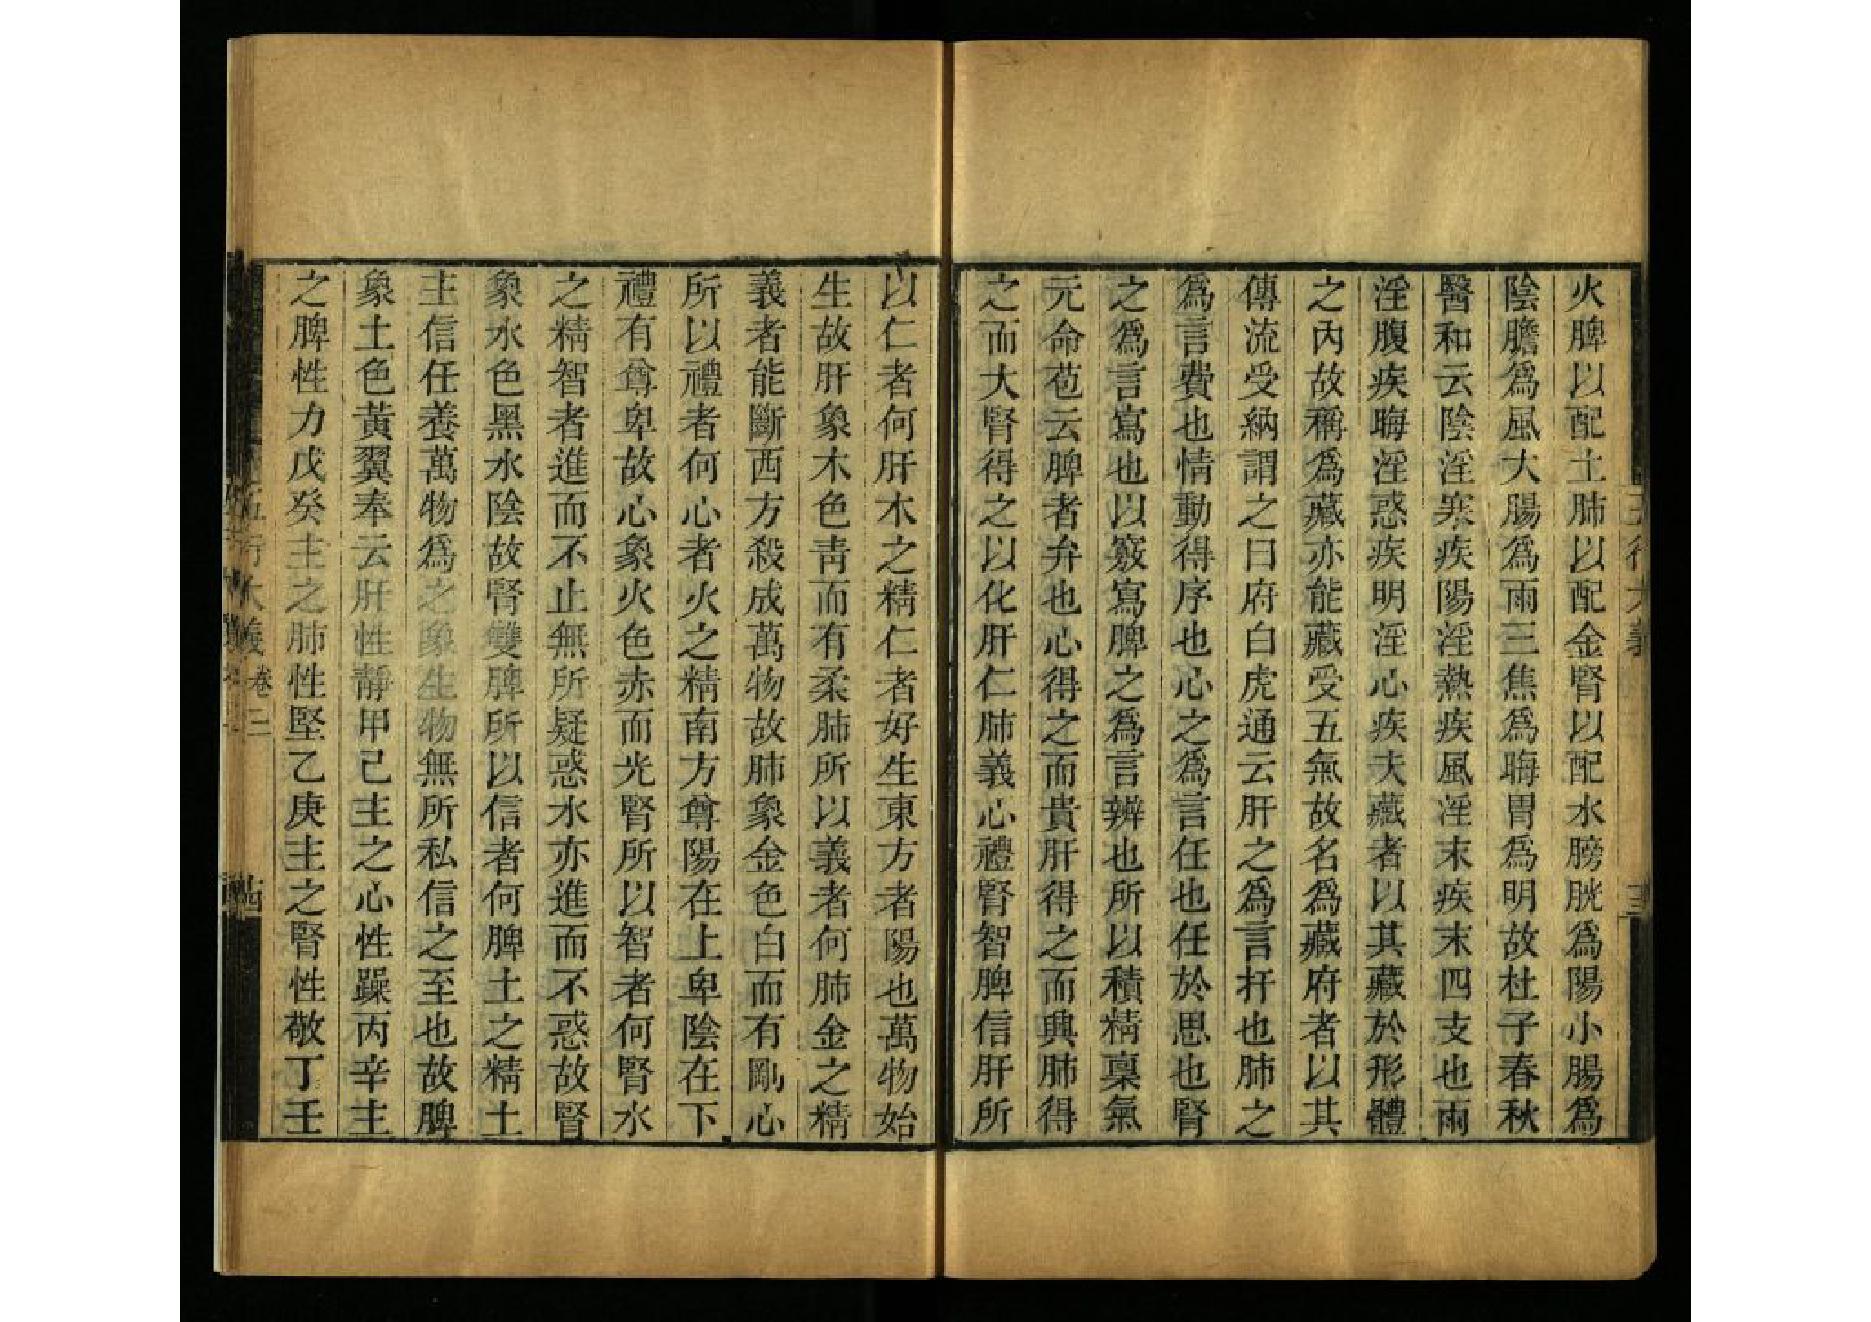 火脾以配土肺以配金腎以配水膀胱爲陽小腸爲
陰膽爲風大腸爲雨三焦爲晦胃爲明故杜子春秋
醫和云陰淫寒疾陽淫熱疾風淫末疾末四支也雨
淫腹疾晦淫惑疾明淫心疾夫藏者以其藏於形體
之內故稱爲藏亦能藏受五氣故名爲藏府者以其
傳流受納謂之曰府白虎通云肝之爲言扞也肺之
爲言費也情動得序也心之爲言任也任於思也腎
之爲言寫也以竅寫脾之爲言辨也所以積精稟氣
元命苞云脾者弁也心得之而貴肝得之而興肺得
之而大腎得之以化肝仁肺義心禮腎智脾信肝所
以仁者何肝木之精仁者好生東方者陽也萬物始
生故肝象木色青而有柔肺所以義者何肺金之精
義者能斷西方殺成萬物故肺象金色白而有剛心
所以禮者何心者火之精南方尊陽在上卑陰在下
禮有尊卑故心象火色赤而光腎所以智者何腎水
之精智者進而不止無所疑惑水亦進而不惑故腎
象水色黑水陰故腎雙脾所以信者何脾土之精土
主信任養萬物爲之象生物無所私信之至也故脾
象土色黃翼奉云肝性靜甲己主之心性躁丙辛主
之脾性力戊癸主之肺性堅乙庚主之腎性敬丁壬
五行大義 卷三